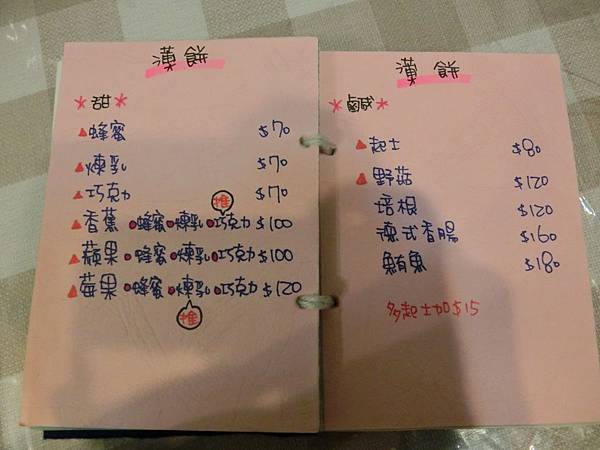 漢餅
*甜*
▲蜂蜜 $70
▲煉乳 $70
▲巧克力 $70
推
▲香蕉•蜂蜜•煉乳•巧克力 $100
▲蘋果•蜂蜜•煉乳•巧克力 $100
▲莓果•蜂蜜•煉乳•巧克力 $120
推
漢餅
*鹹*
▲起士 $80
▲野菇 $120
培根 $120
德式香腸 $160
鮪魚 $180
多起士加$15